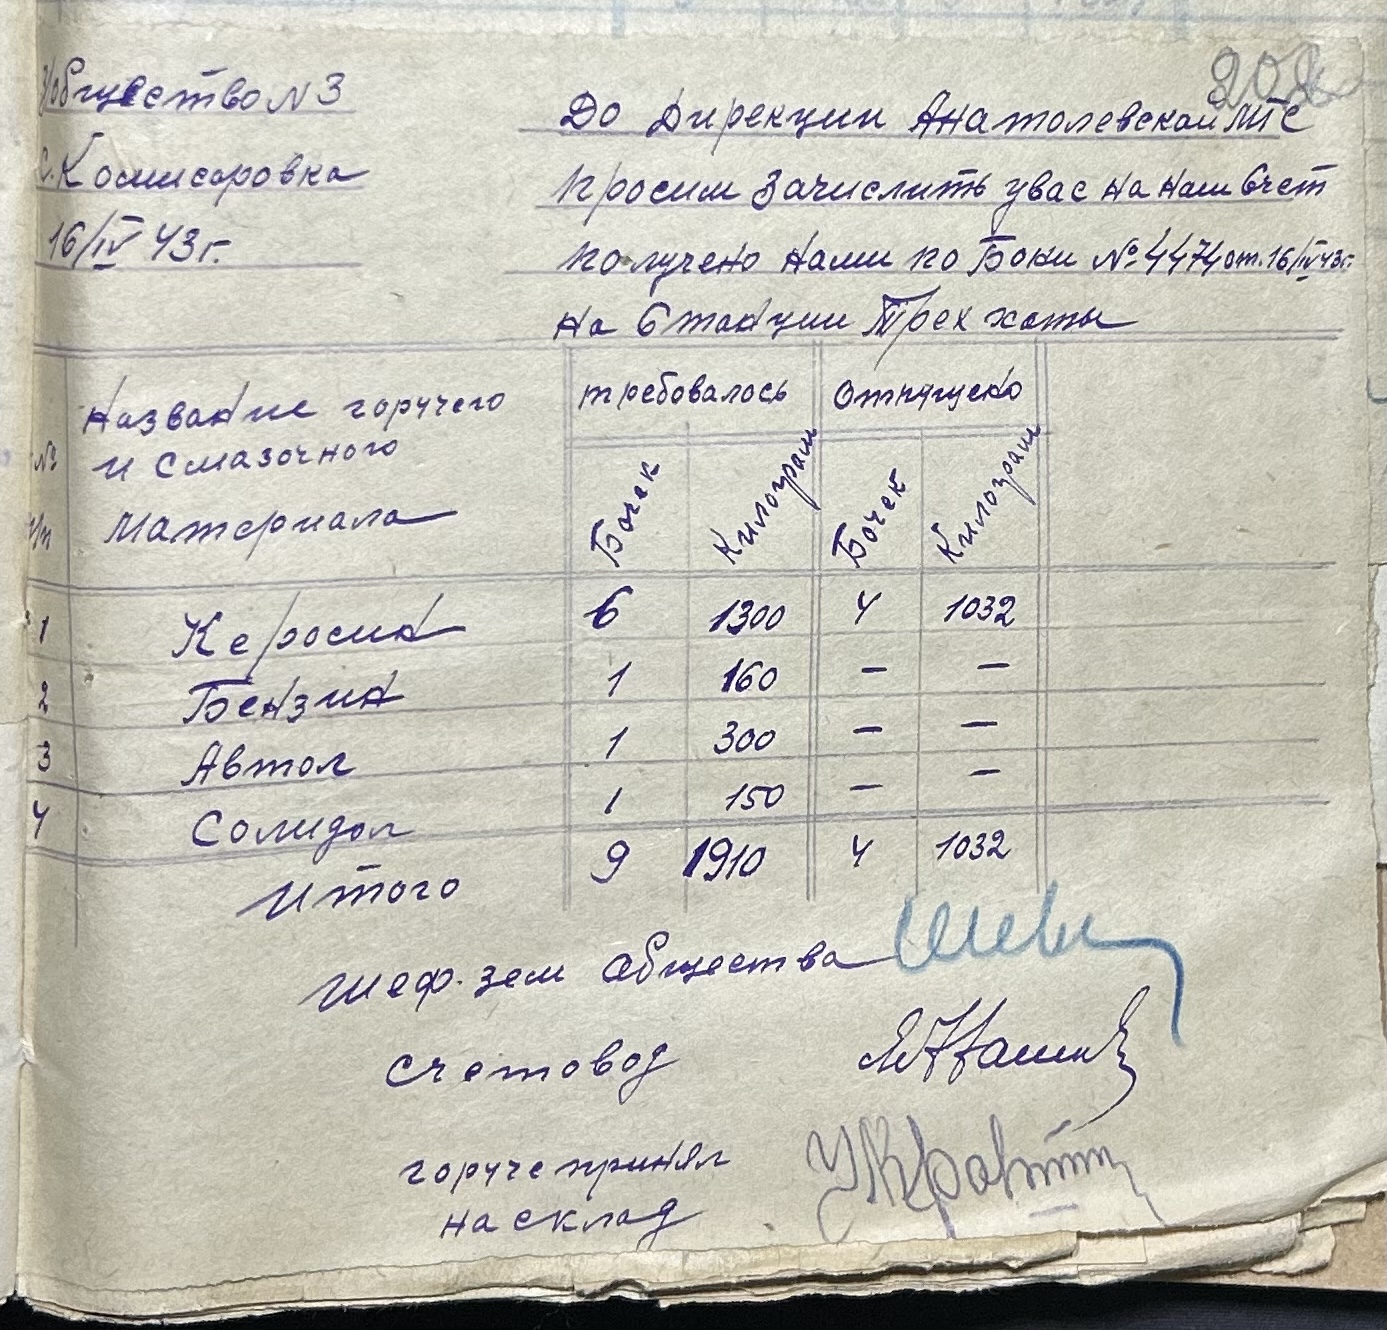 З/общество N 3
с. Комисаровка
16/IV 43 г.
До Дирекции Анатолевской МТС
Просим Зачислить увас на наш Счет
получено нами по Боки № 4474 от. 16/IV 43 г.
на Станции Трех хаты
№ п/п
Название горучего и Смазочного Материала
требовалось
отпущено
Бочек
Килограм
Бочек
Килограм
1 Керосин 6 1300 4 1032
2 Бензин 1 160 — —
3 Автол 1 300 — —
4 Солидол 1 150 — —
Итого 9 1910 4 1032
шеф. зем общества
счетовод
горуче принял
на склад